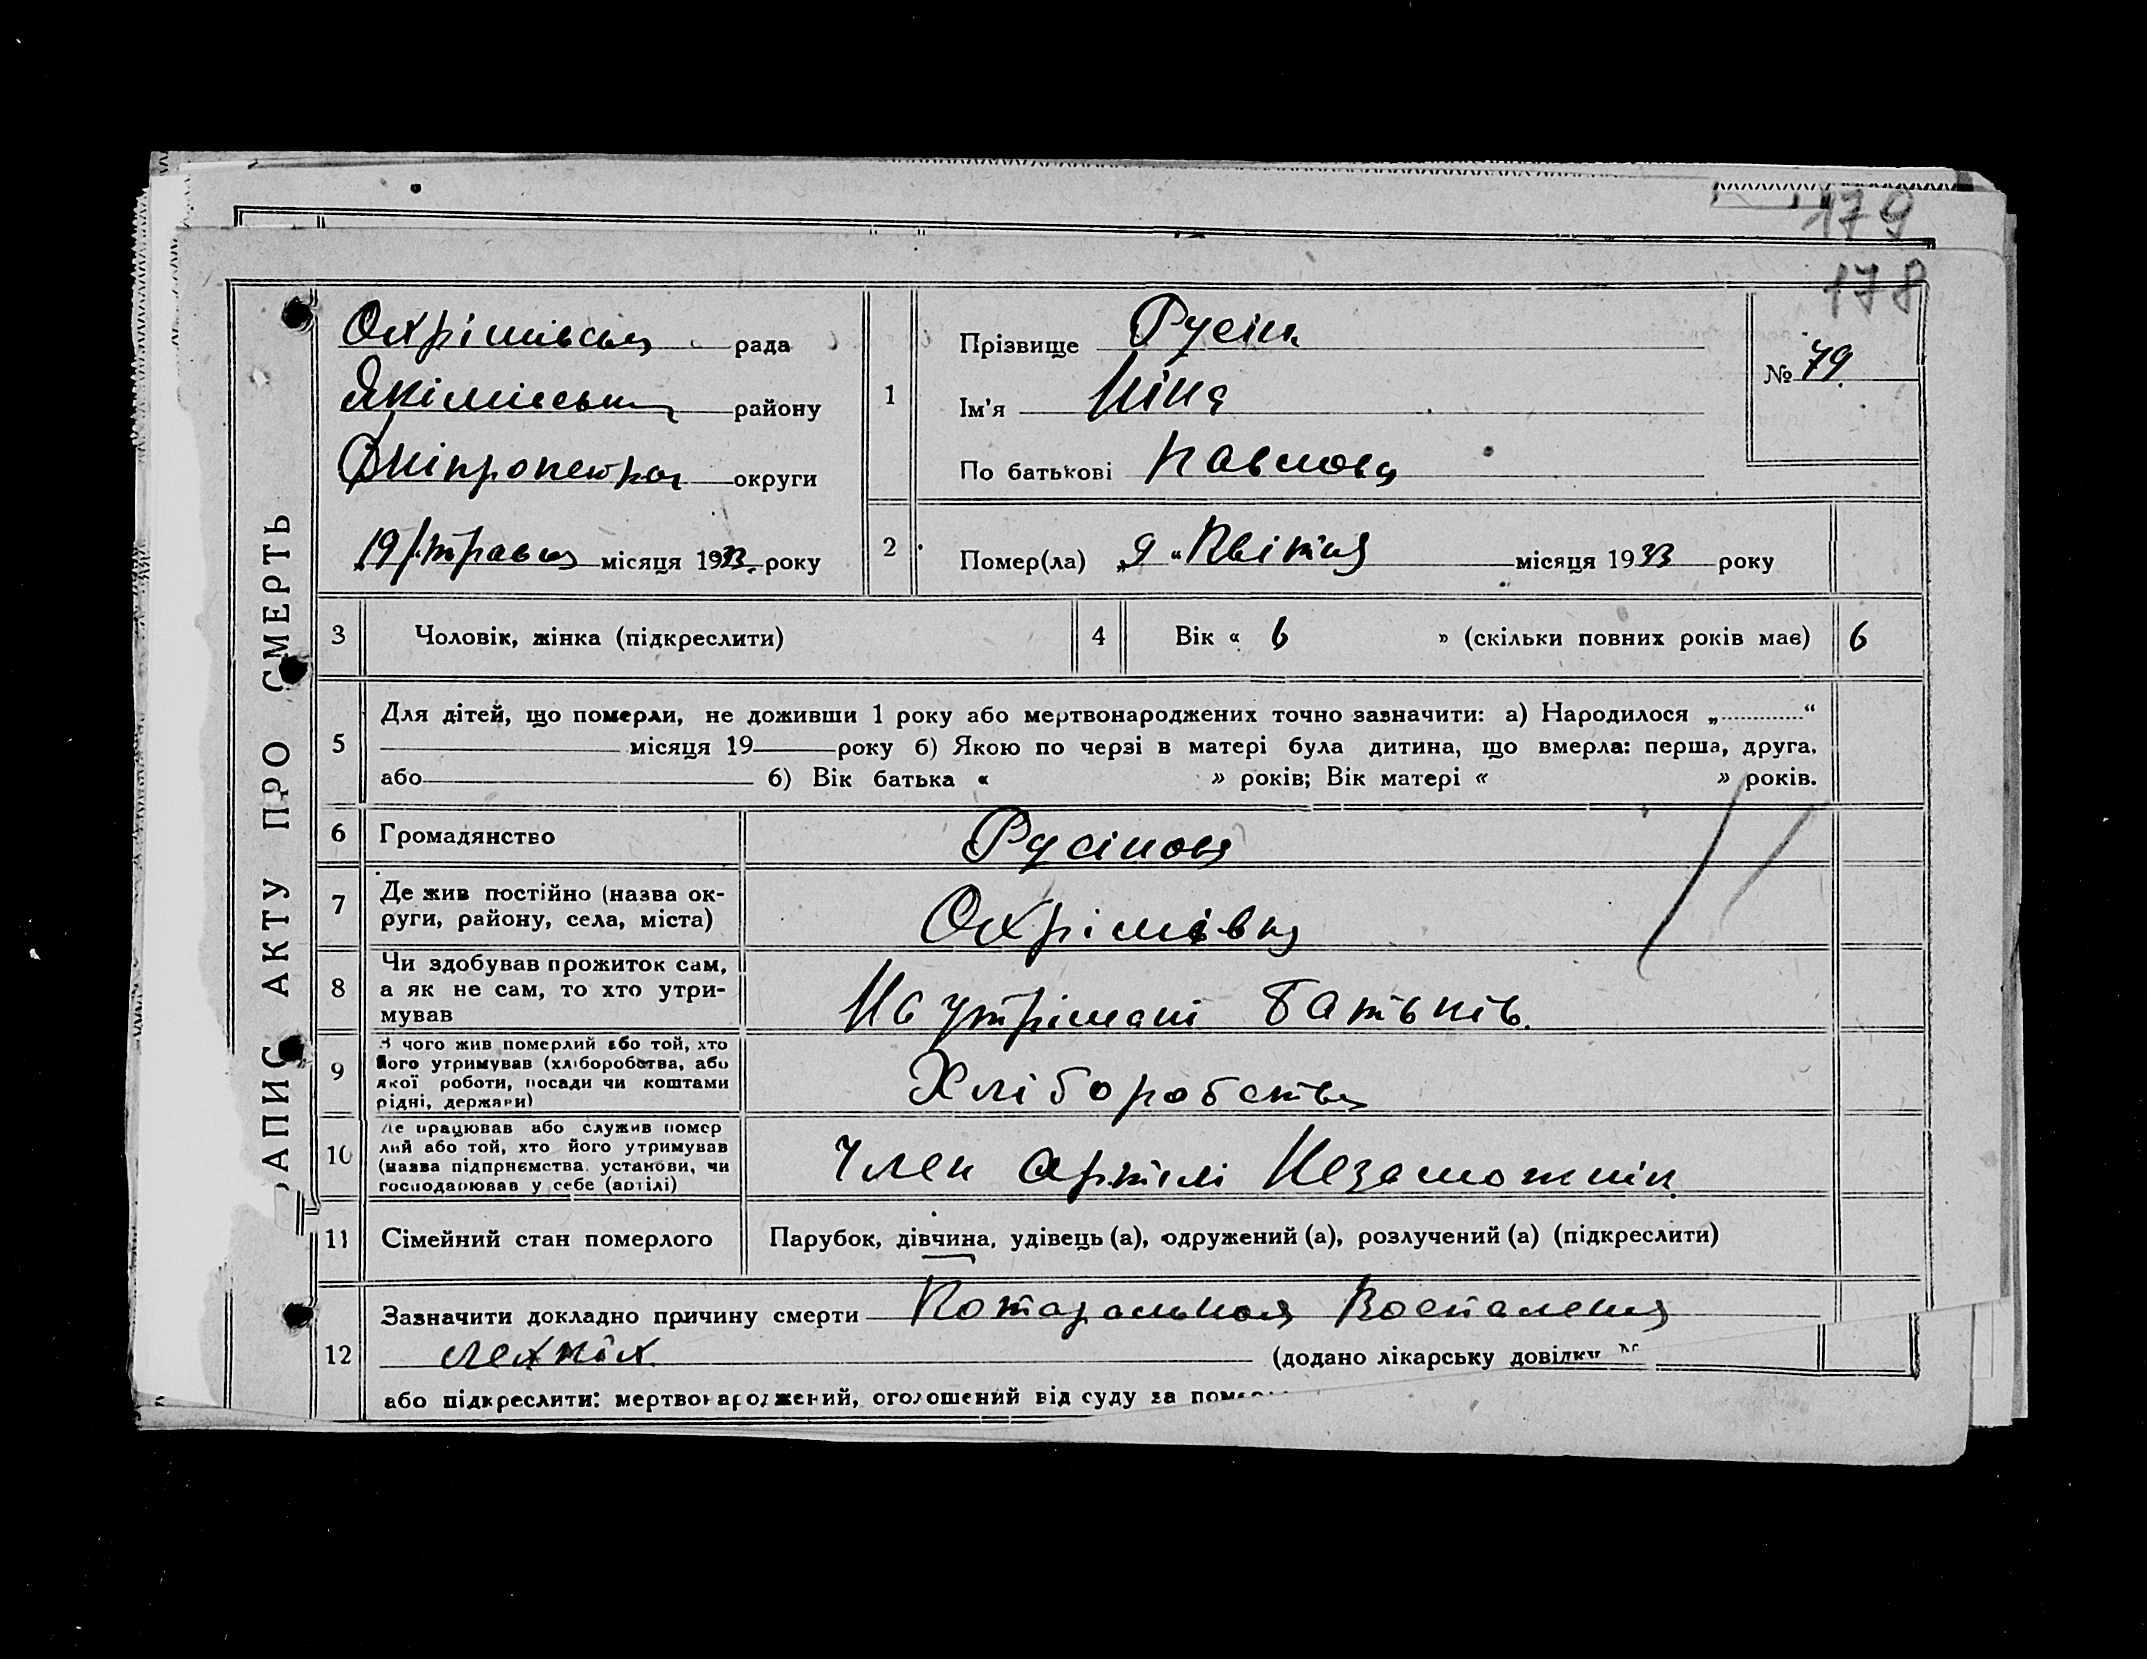 179
178
ЗАПИС АКТУ ПРО СМЕРТЬ
Охрімівська рада
Якімівськ району
Дніпропетро округи
„19/травня місяця 1933 року
1
Прізвище Русін
Ім'я Ніна
По батькові Павлова
№ 79
2
Помер(ла) „9 “ Квітня місяця 1933 року
3 Чоловік, жінка (підкреслити)
4 Вік « 6 » (скільки повних років має) 6
5 Для дітей, що померли, не доживши 1 року або мертвонароджених точно зазначити: а) Народилося „............“
місяця 19 року б) Якою по черзі в матері була дитина, що вмерла: перша, друга,
або б) Вік батька « » років; Вік матері « » років.
6 Громадянство Русінова
7 Де жив постійно (назва ок-
руги, району, села, міста) Охрімівка
8 Чи здобував прожиток сам,
а як не сам, то хто утри-
мував На утрімані батьків.
9 З чого жив померлий або той, хто
його утримував (хліборобства, або
якої роботи, посади чи коштами
рідні, держави) Хліборобства
10 Де працював або служив помер
лий або той, хто його утримував
(назва підприємства, установи, чи
господарював у себе (артілі) Член Артілі Незаможнік
11 Сімейний стан померлого Парубок, дівчина, удівець (а), одружений (а), розлучений (а) (підкреслити)
12 Зазначити докладно причину смерти Воспаленія
лехкіх (додано лікарську довідку
або підкреслити: мертвонароджений, оголошений від суду за помер